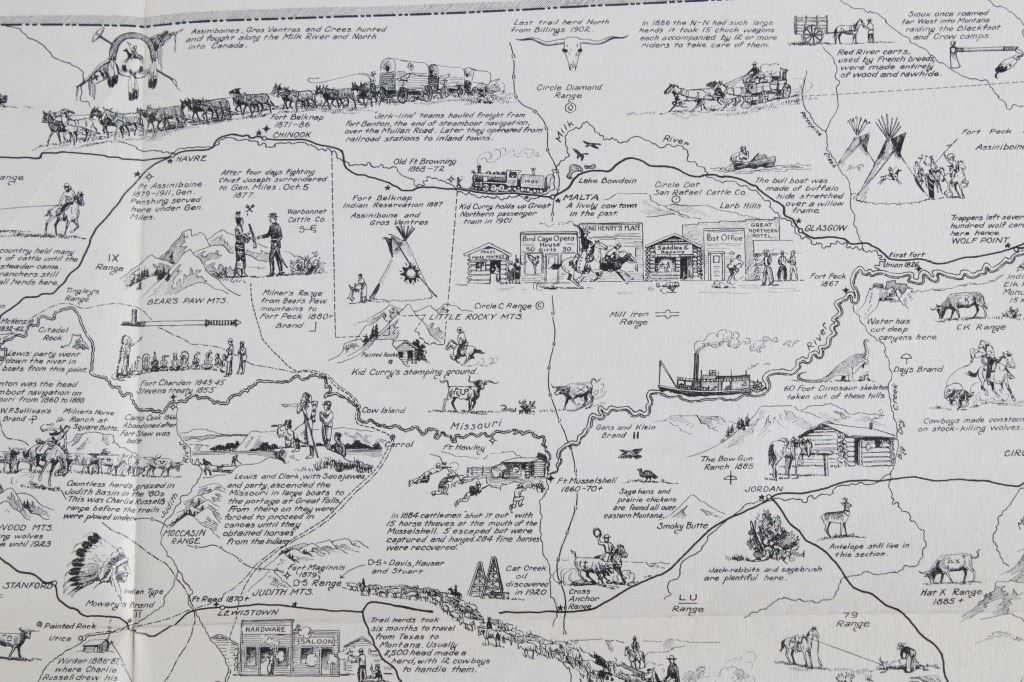 Assiniboines, Gros Ventres and Crees hunted
and fought along the Milk River and North
into Canada.
Last trail herd North
from Billings 1902.
In 1886 the N-N had such large
herds it took 15 chuck wagons
each accompanied by 12 or more
riders to take care of them.
Sioux once roamed
far West into Montana
raiding the Blackfoot
and Crow camps.
Red River carts,
used by French breeds,
were made entirely
of wood and rawhide.
Circle Diamond
Range
Fort Belknap
1871-86
CHINOOK
"Jerk-line" teams hauled freight from
Fort Benton, the end of steamboat navigation,
over the Mullan Road. Later they operated from
railroad stations to inland towns.
Milk
River
Porcupine
Fort Peck
Assiniboine
HAVRE
Old Ft Browning
1868-72
Lake Bowdoin
The bull boat was
made of buffalo
hide stretched
over a willow
frame.
Ft Assiniboine
1879-1911, Gen.
Pershing served
here under Gen.
Miles.
After four days fighting
Chief Joseph surrendered
to Gen. Miles. Oct. 5
1877
Fort Belknap
Indian Reservation 1887
Assiniboine and
Gros Ventres
Kid Curry holds up Great
Northern passenger
train in 1901.
MALTA
A lively cow town
in the past.
Circle Dot
San Rafael Cattle Co.
Larb Hills
GLASGOW
Trappers left several
hundred wolf carcasses
here hence
WOLF POINT
Warbonnet
Cattle Co.
Bird Cage Opera
House
50 Girls 50
LONG HENRY'S PLACE
Saddles &
Post Office
GREAT
NORTHERN
HOTEL
First Fort
Union 1826
country held many
of cattle until the
steader came.
ranchers still
all herds here.
IX
Range
BEAR'S PAW MTS.
Milner's Range
from Bears Paw
mountains to
Fort Peck 1880+
Brand
Fort Peck
1867
Tingley's
Range
Circle C Range
LITTLE ROCKY MTS.
Mill Iron
Range
CK Range
Water has
cut deep
canyons here
McKenzie
1832-42
Citadel
Rock
Painted Rocks
Kid Curry's stamping ground.
River
Day's Brand
Lewis' party went
down the river in
boats from this point
Fort Chardon 1843-45
Stevens treaty 1855
60 Foot Dinosaur skeletons
taken out of these hills
Benton was the head
steamboat navigation on
Missouri from 1860 to 1888
W.P. Sullivan's
Brand
Milner's Home
Ranch at
Square Butte.
Camp Cook 1866
Abandoned after
Fort Shaw was
built
Cow Island
Missouri
Carrol
Ft Hawley
Gans and Klein
Brand
The Bow Gun
Ranch 1885
Cowboys made constant
on stock-killing wolves
Countless herds grazed in
Judith Basin in the '80s
This was Charlie Russell's
range before the trails
were plowed under
Judith
MOCCASIN
RANGE
Lewis and Clark, with Sacajawea
and party, ascended the
Missouri in large boats to
the portage at Great Falls.
From there on they were
forced to proceed in
canoes until they
obtained horses
from the Indians.
Ft Musselshell
1860-70+
Sage hens and
prairie chickens
are found all over
eastern Montana.
JORDAN
Smoky Butte
In 1884 cattlemen "shot it out" with
15 horse thieves at the mouth of the
Musselshell. 5 escaped but were
captured and hanged. 284 fine horses
were recovered.
Antelope still live in
this section.
Jack-rabbits and sagebrush
are plentiful here.
WOOD MTS.
wolves
until 1923
STANFORD
Indian Type
Mowery's Brand
Fort Maginnis
1879
D-S Range
JUDITH MTS.
D-S = Davis, Hauser
and Stuart
Cat Creek
oil
discovered
in 1920
Cross
Anchor
Range
LU
Range
79
Range
Hat X Range
1885+
Ft Reed 1870+
LEWISTOWN
Painted Rock
Utica
Winter 1886-87
where Charlie
Russell drew his
HARDWARE
SALOON
Trail herds took
six months to travel
from Texas to
Montana. Usually
2,500 head made a
herd, with 12 cowboys
to handle them.